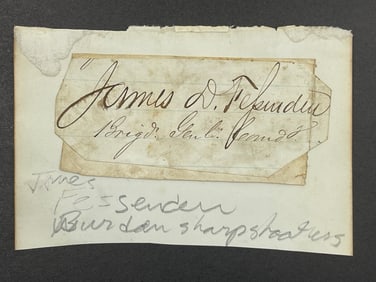 James D. Fessenden
Brigd. Genl. Comdg.
James
Fessenden
Burdan sharpshooters